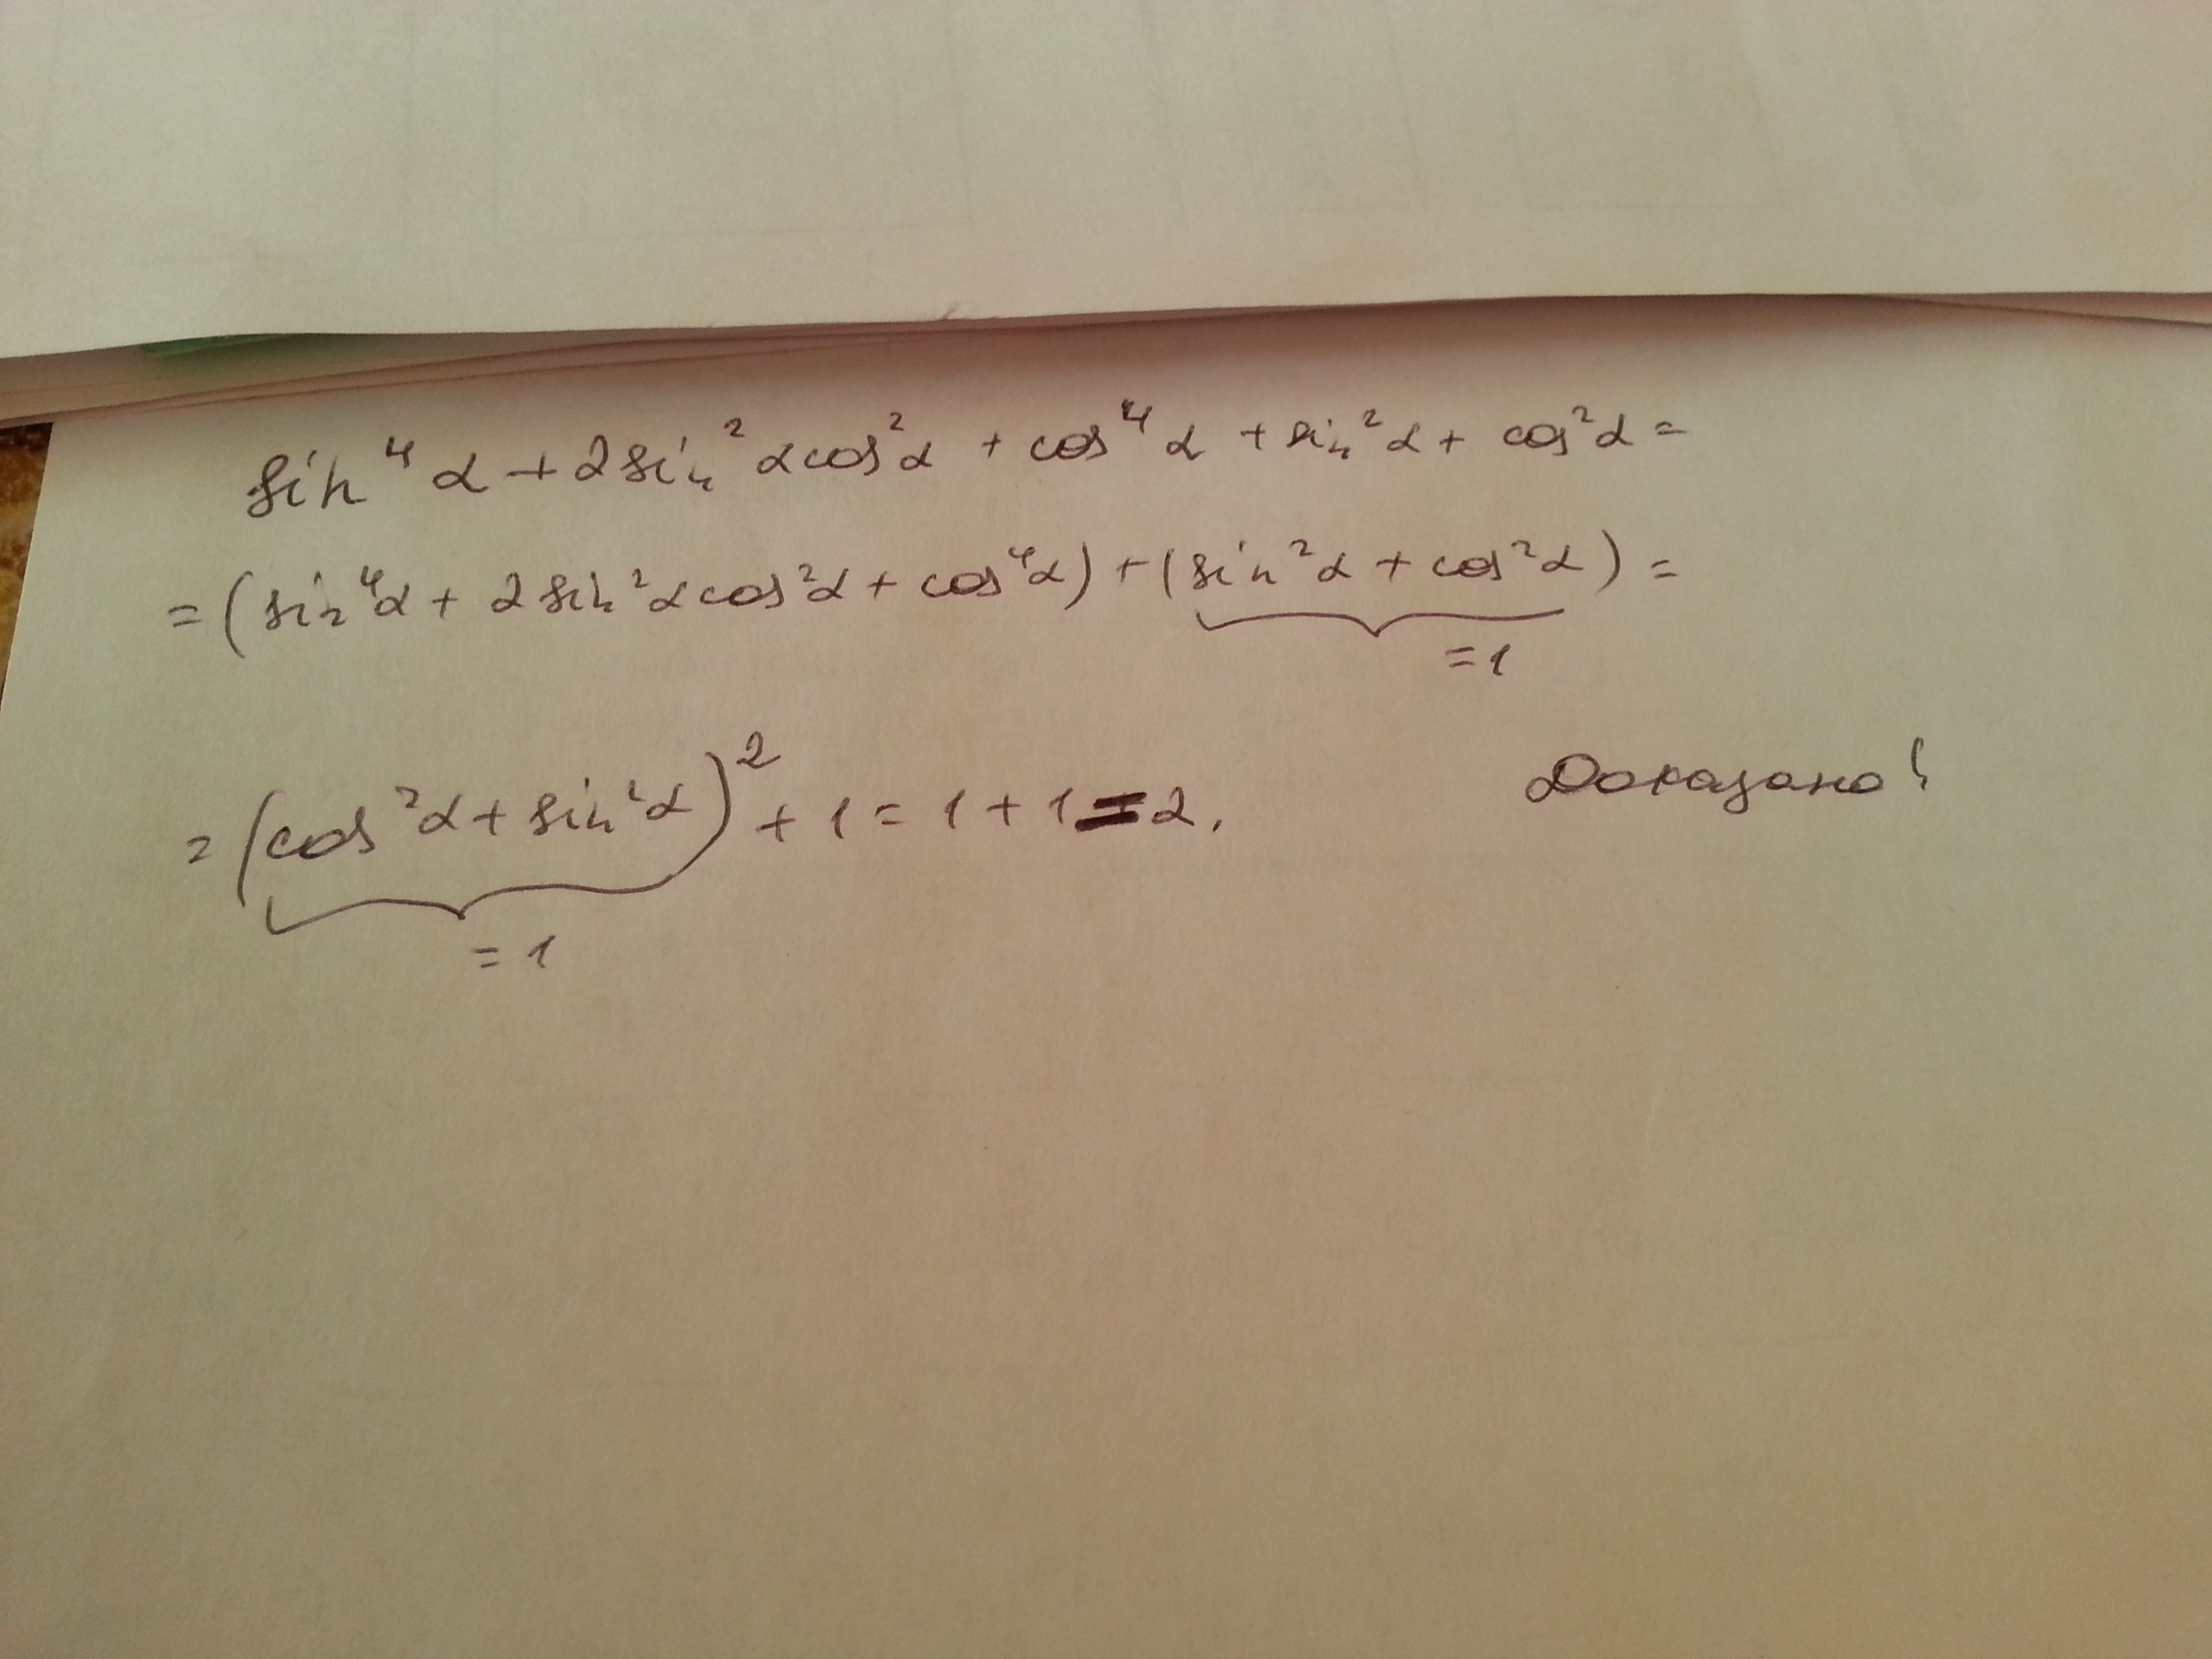 sin⁴α + 2sin²αcos²α + cos⁴α + sin²α + cos²α =
= (sin⁴α + 2sin²αcos²α + cos⁴α) + (sin²α + cos²α) =
= 1
= (cos²α + sin²α)² + 1 = 1 + 1 = 2. Доказано!
= 1